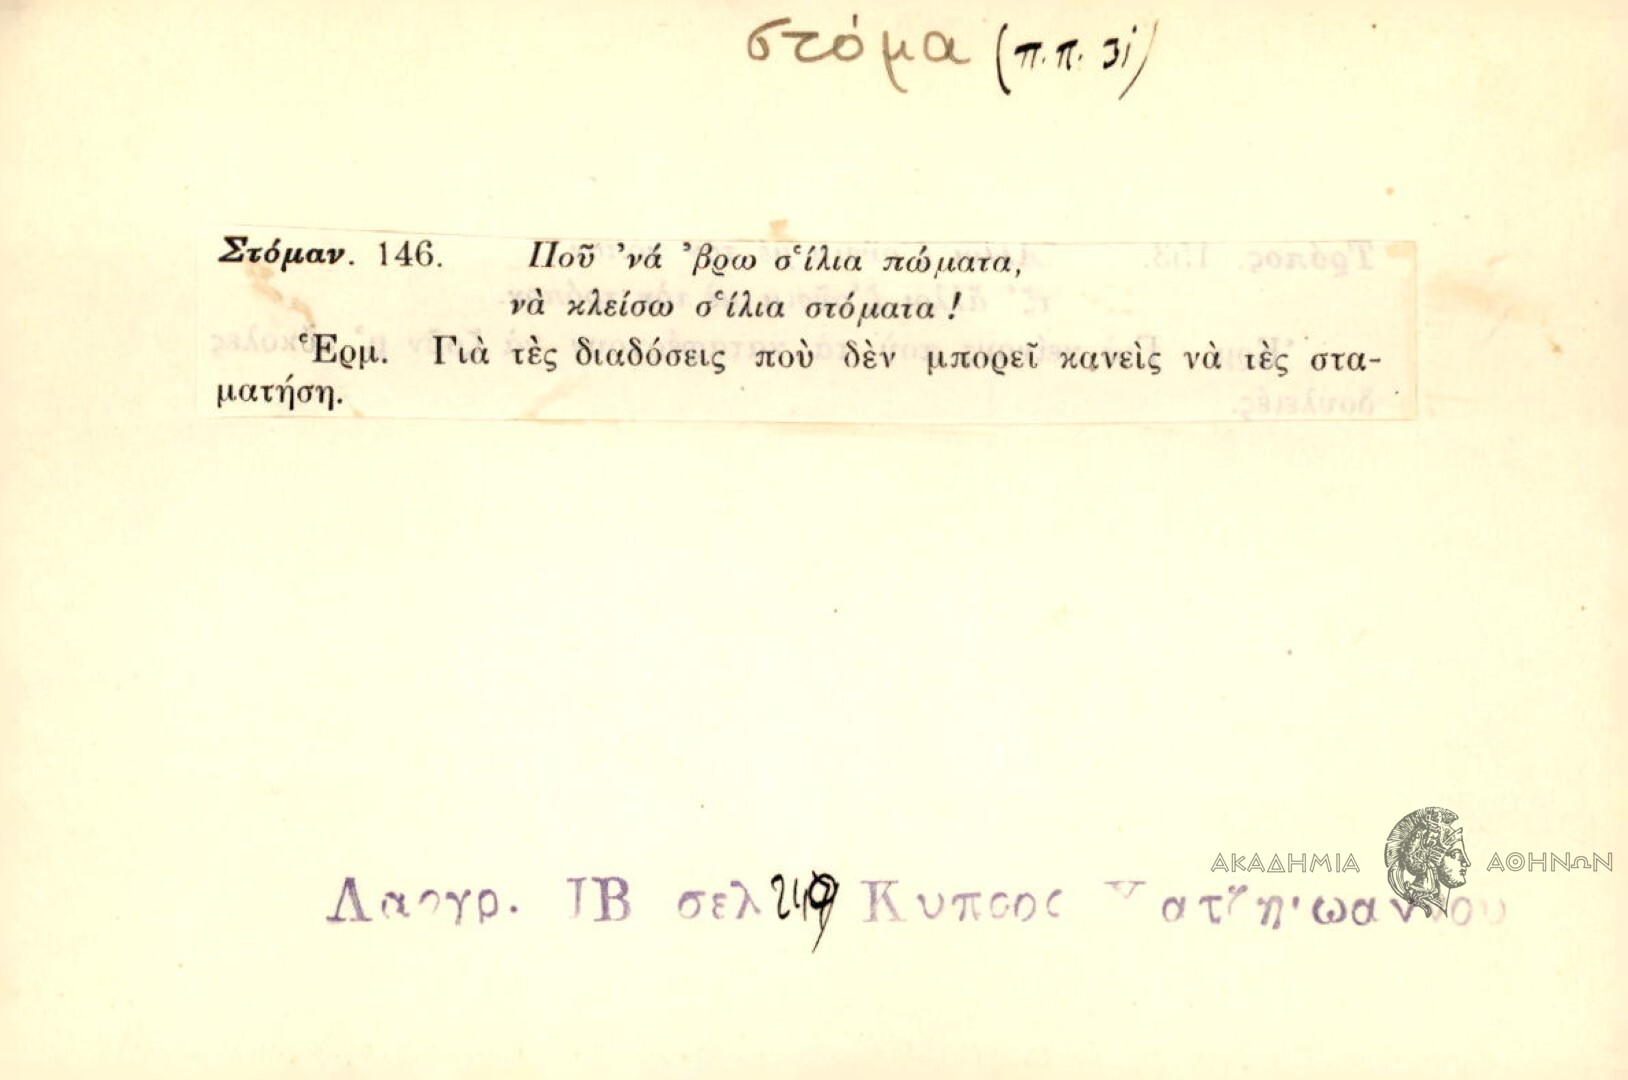 στόμα (π.π. 31)
Στόμαν. 146. Ποῦ ’νά ’βρω σ῾ίλια πώματα,
νὰ κλείσω σ῾ίλια στόματα !
Ἑρμ. Γιὰ τὲς διαδόσεις ποὺ δὲν μπορεῖ κανεὶς νὰ τὲς στα-
ματήση.
ΑΚΑΔΗΜΙΑ ΑΘΗΝΩΝ
Λαογρ. ΙΒ σελ Κυπρος Χατζηιωαννου